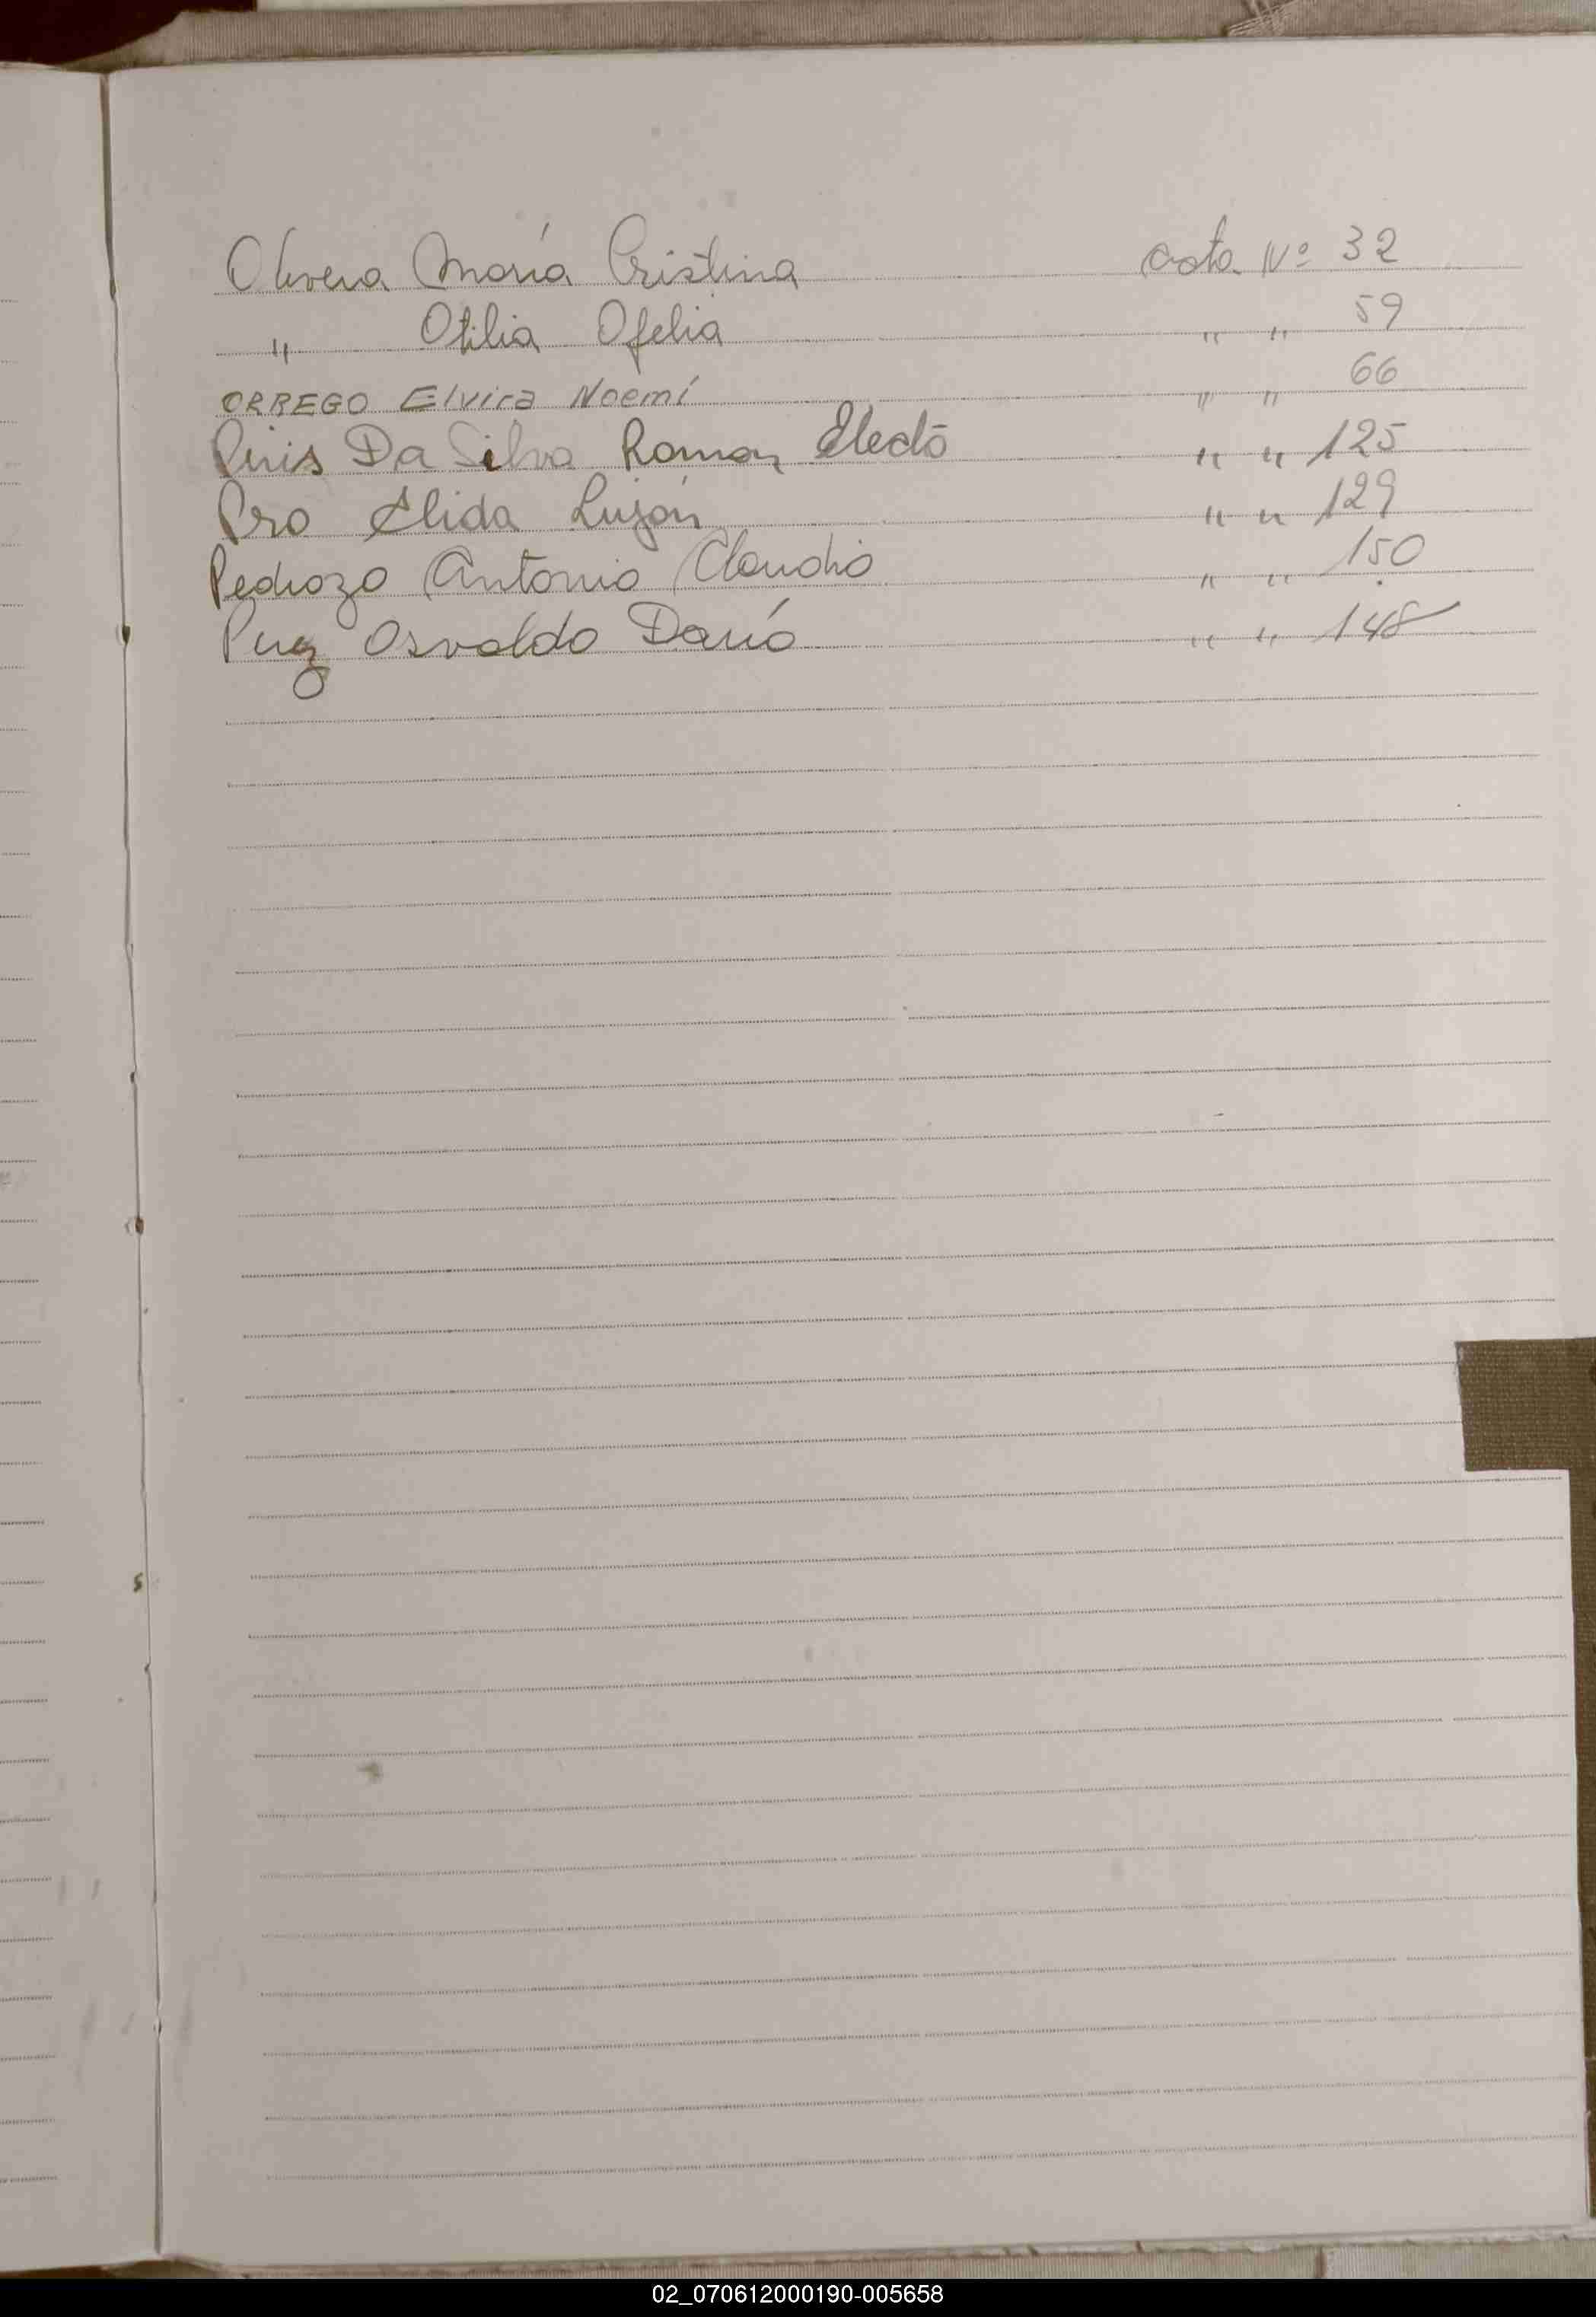 Olivera María Cristina acta Nº 32
" Otilia Ofelia " " 59
ORREGO Elvira Noemí " " 66
Piris Da Silva Ramon Electo " " 125
Pro Elida Luján " " 129
Pedrozo Antonio Claudio " " 150
Osvaldo Darío " " 148
02_070612000190-005658